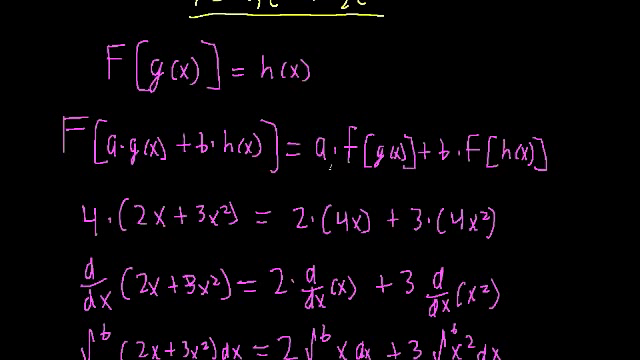 F[g(x)] = h(x)
F[a·g(x) + b·h(x)] = a·f[g(x)] + b·F[h(x)]
4·(2x + 3x²) = 2·(4x) + 3·(4x²)
d/dx (2x + 3x²) = 2·d/dx (x) + 3 d/dx (x²)
∫ᵇ (2x + 3x²) dx = 2∫ᵇ x dx + 3∫ᵇ x² dx